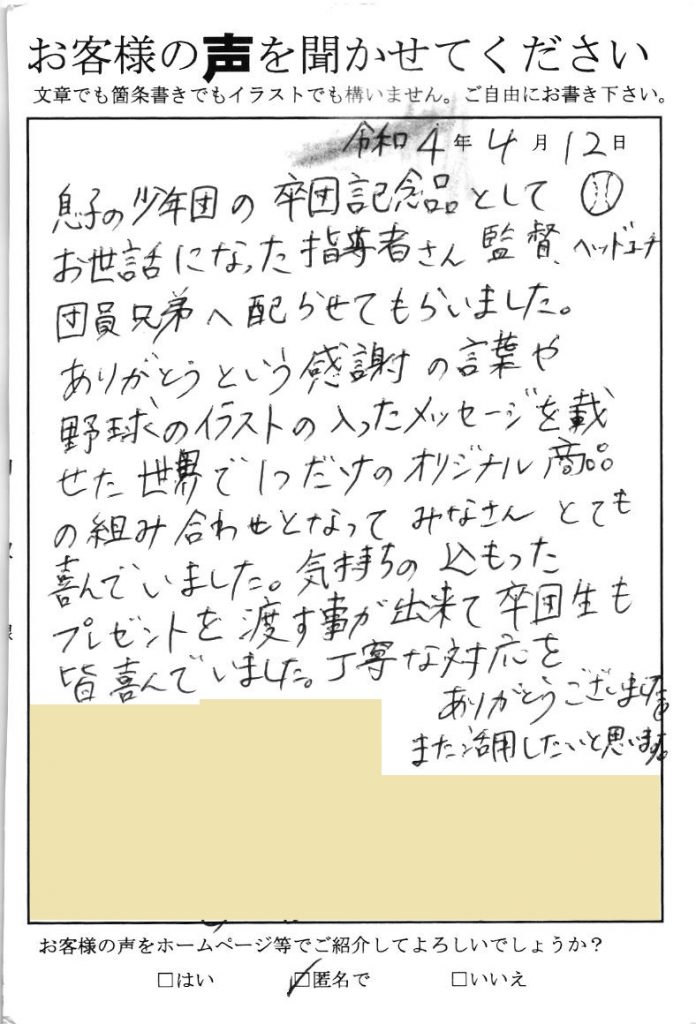 お客様の声を聞かせてください
文章でも箇条書きでもイラストでも構いません。ご自由にお書き下さい。
令和4年4月12日
息子の少年団の卒団記念品として
お世話になった指導者さん監督、ヘッドコーチ
団員兄弟へ配らせてもらいました。
ありがとうという感謝の言葉や
野球のイラストの入ったメッセージを載
せた世界で1つだけのオリジナル商品
の組み合わせとなってみなさんとても
喜んでいました。気持ちの込もった
プレゼントを渡す事が出来て卒団生も
皆喜んでいました。丁寧な対応を
ありがとうございました
また活用したいと思います。
お客様の声をホームページ等でご紹介してよろしいでしょうか？
□はい ☑匿名で □いいえ